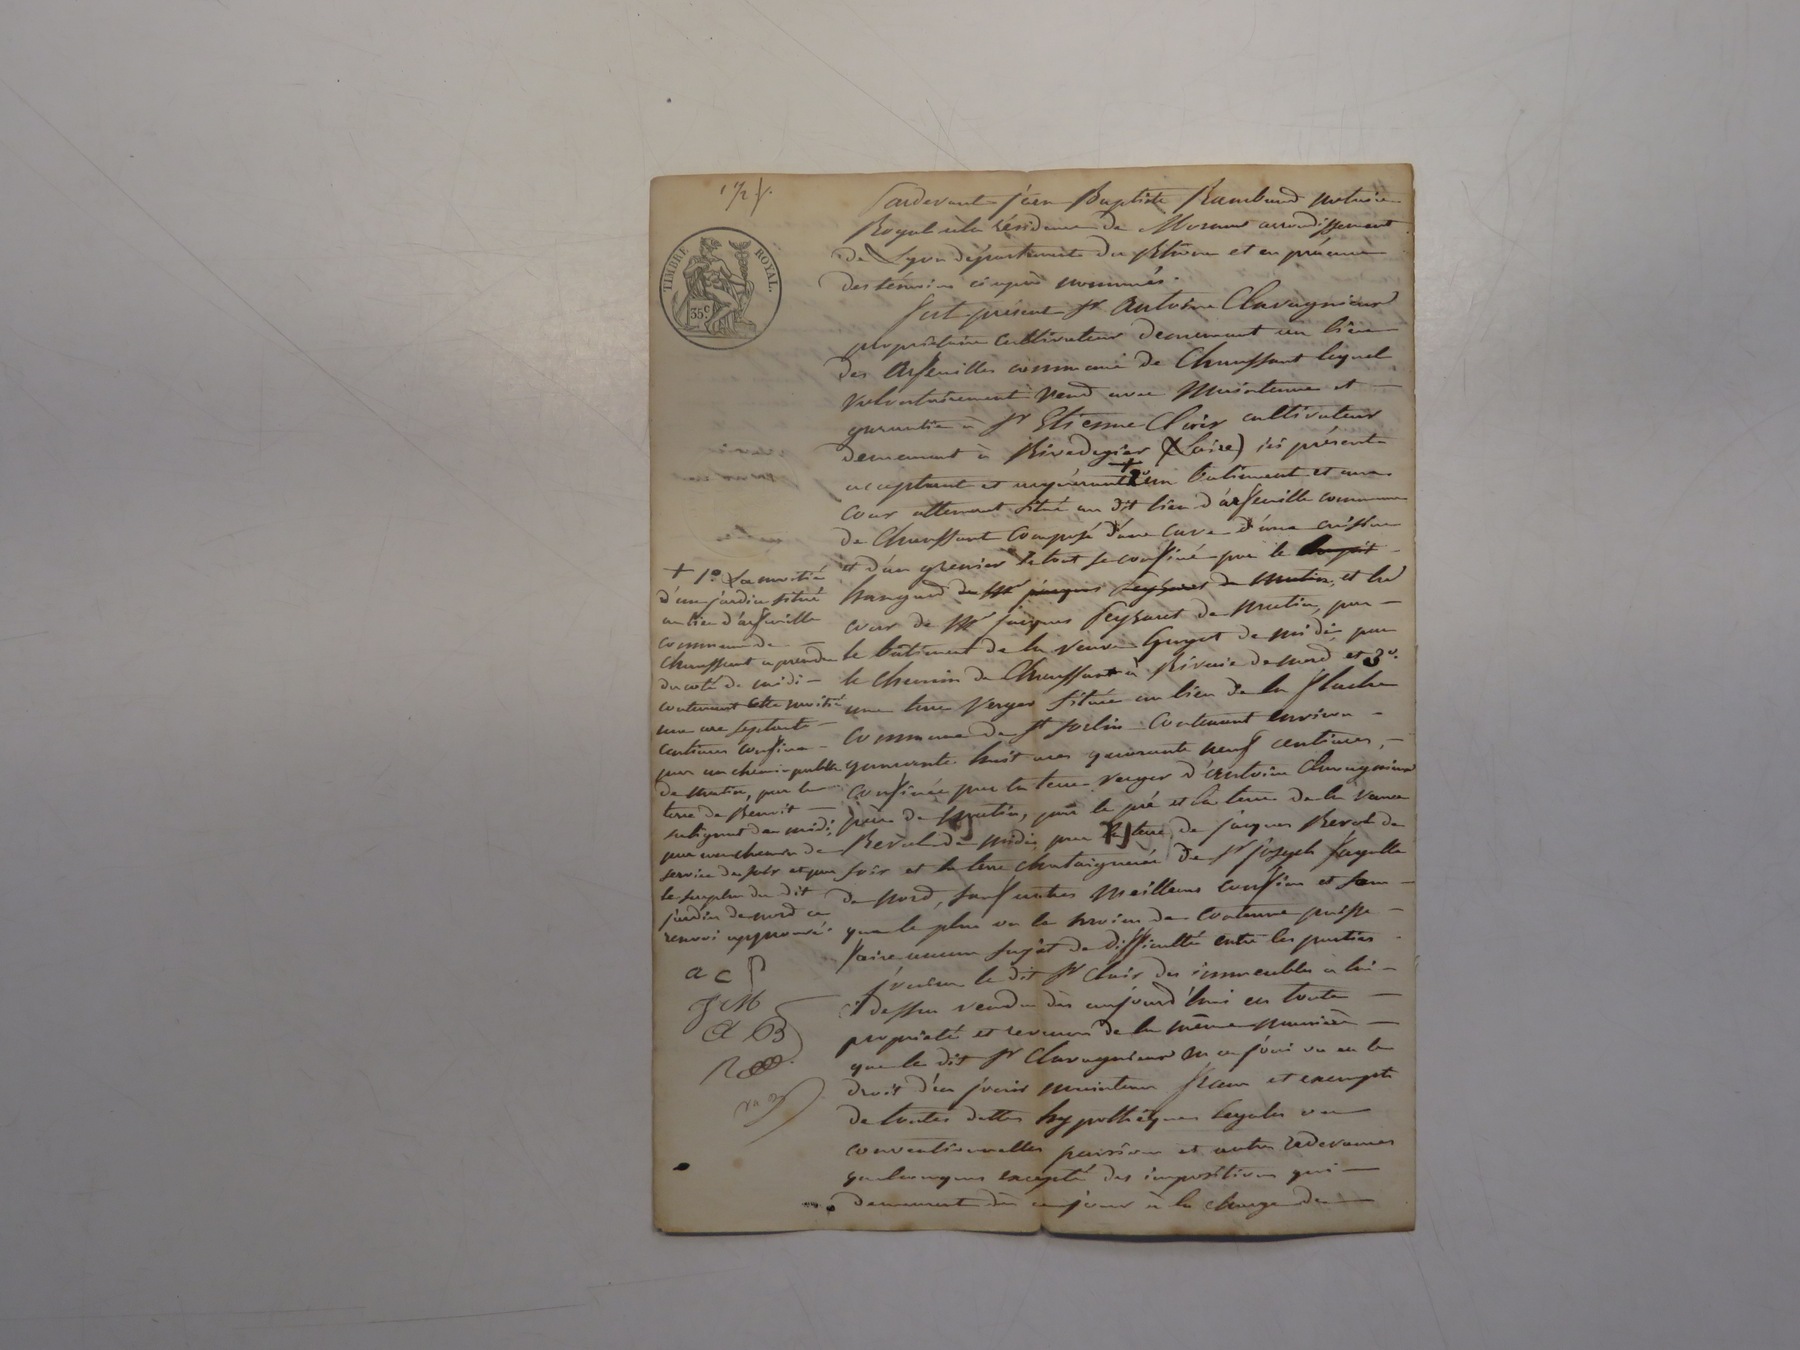 TIMBRE ROYAL.
35 c
Pardevant jean Baptiste Rambaud notaire
Royal à la résidence de Mornant arrondissement
de Lyon département du Rhône et en présence
des témoins ci après nommés.
Est présent Sr Antoine Clavagnieux
propriétaire cultivateur demeurant au lieu
des Arfeuilles commune de Chaussant lequel
volontairement vend avec Maintenue et
garantie à Sr Etienne Clair cultivateur
demeurant à Rivedegier (Loire) ici présent
acceptant et requérant + 2° un batiment et une
Cour attenant situé au dit lieu d'arfeuille commune
de Chaussant Composé d'une Cave d'une cuisine
et d'un grenier le tout se confiné par le
hangard du Mr jacques Peyzaret de matin, et la
cour de Mr jacques Peyzaret de matin, par
le batiment de la veuve Guyot de midi, par
le chemin de Chaussant à Riverie de nord et 3°.
une terre Verger située au lieu de la Flache
Commune de St Sorlin Contenant environ
quarante huit ares quarante neuf centiares,
Confinée par la terre verger d'antoine Clavagnieux
père de matin, par le pré et la terre de la veuve
Revol de midi, par la terre de jacques Revol de
soir et la terre chataigneraie de Sr joseph Fayolle
de nord, sauf autres meilleurs confins et sans
que le plus ou le moins de Contenue puisse
faire aucun sujet de difficulté entre les parties
jouira le dit Sr Clair des immeubles à lui
ci dessus vendu dès aujourd'hui en toute
propriété et revenus de la même manière
que le dit Sr Clavagnieux en a joui ou eu le
droit d'en jouir maintenu franc et exempt
de toutes dettes hypothèques légales ou
conventionnelles pensions et autres redevances
quelconques excepté des impositions qui
demeurent dès ce jour à la charge de
+ 1° La moitié
d'un jardin situé
au lieu d'arfeuille
commune de
Chaussant à prendre
du coté de midi
contenant cette moitié
un are septante
centiares confiné
par un chemin public
de matin, par la
terre de Benoit
de midi,
par un chemin de
service de soir et par
le surplus du dit
jardin de nord ce
renvoi approuvé.
a c
J M